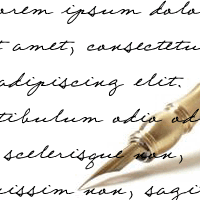 orem ipsum dolo
t amet, consectetu
adipiscing elit.
tibulum odio od
scelerisque non,
issim non, sagi